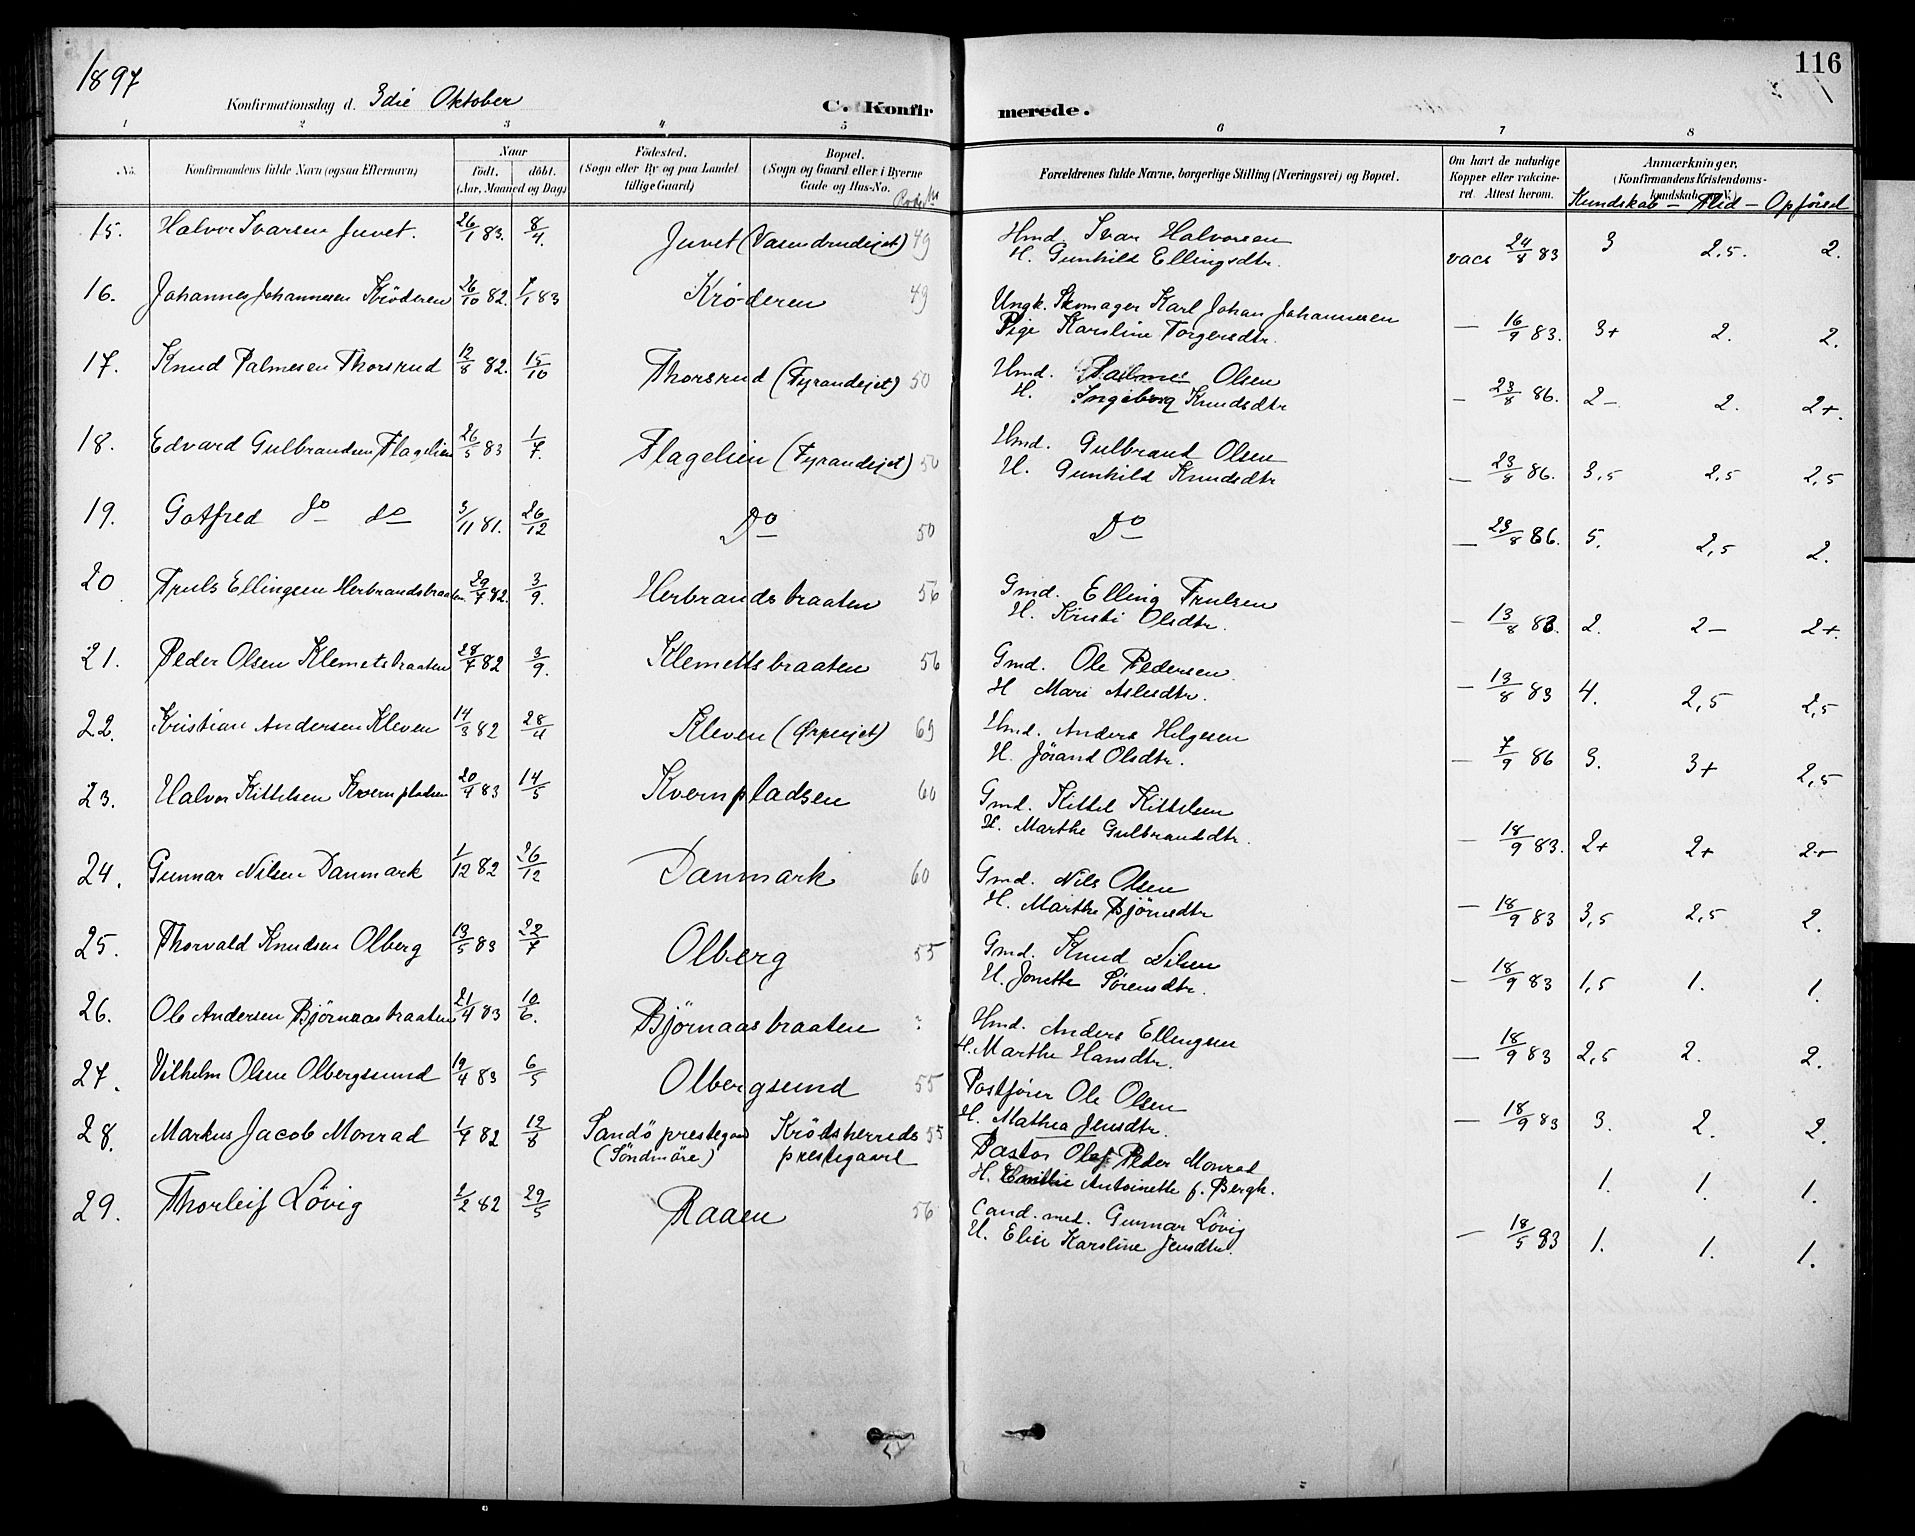 1897
116
Konfirmationsdag d. 3die Oktober
C. Konfirmerede.
1 2 3 4 5 6 7 8
No.
Konfirmandens fulde Navn (ogsaa Efternavn)
Naar
født. døbt.
(Aar, Maaned og Dag)
Fødested.
(Sogn eller By og paa Landet tillige Gaard)
Bopæl.
(Sogn og Gaard eller i Byerne Gade og Hus-No.
Forældrenes fulde Navne, borgerlige Stilling (Næringsvei) og Bopæl.
Om havt de naturlige Kopper eller vakcineret. Attest herom.
Anmærkninger.
(Konfirmandens Kristendomskundskab
Kundskab – Flid – Opførsel
15. Halvor Ivarsen Juvet. 26/1 83. 8/4 Juvet (Vasendrudejet) 49 Hmd. Ivar Halvorsen vacs 24/8 83 3 2,5. 2.
H. Gunhild Ellingsdtr.
16. Johannes Johannesen Krøderen 26/10 82. 7/1 83 Krøderen 49 Ungk. Skomager Karl Johan Johannesen — 16/9 83. 3+ 2. 2.
Pige Karoline Torgersdtr.
17. Knud Palmesen Thorsrud 12/8 82. 15/10 Thorsrud (Fyrandejet) 50 Hmd. Palme Olsen — 23/8 86. 2– 2. 2+.
H. Ingeborg Knudsdtr
18. Edvard Gulbrandsen Flagelien 26/5 83 1/7. Flagelien (Fyrandejet) 50 Hmd. Gulbrand Olsen — 23/8 86. 3,5 2,5 2,5
H. Gunhild Knudsdtr
19. Gotfred do do 3/11 81. 26/12 Do 50 Do — 23/8 86. 5. 2,5 2.
20 Truls Ellingsen Herbrandsbraaten 29/7 82. 3/9. Herbrandsbraaten 56 Gmd. Elling Trulsen — 13/8 83. 2. 2– 2+.
H. Kristi Olsdtr.
21. Peder Olsen Klemetsbraaten 28/7 82 3/9. Klemettsbraaten 56 Gmd. Ole Pedersen. — 13/8 83 4. 2,5 2,5
H Mari Aslesdtr.
22. Kristian Andersen Kleven 14/3 82 28/4 Kleven (Ørpenjet) 69 Hmd. Anders Helgesen — 7/9 86 3. 3+ 2,5
H. Jørand Olsdtr.
23. Halvor Kittelsen Kvernpladsen 20/4 83 14/5 Kvernpladsen 60 Gmd. Kittel Kittelsen — 18/9 83. 2+ 2+ 2+
H. Marthe Gulbrandsdtr.
24. Gunnar Nilsen Danmark 1/12 82 26/12 Danmark 60 Gmd. Nils Olsen — 18/9 83 3,5 2,5 2.
H. Marthe Bjørnsdtr
25. Thorvald Knudsen Olberg 13/5 83 22/7 Olberg 55 Gmd. Knud Nilsen — 18/9 83 1,5 1. 1.
H. Jonette Sørensdtr.
26. Ole Andersen Bjørnaasbraaten 21/4 83 10/6. Bjørnaasbraaten ? Hmd. Anders Ellingsen — 18/9 83 2,5 2. 2.
H. Marthe Hansdtr.
27. Vilhelm Olsen Olbergsund 19/4 83 6/5 Olbergsund 55 Postfører Ole Olsen — 18/9 83 3. 2. 2.
H. Mathea Jensdtr.
28. Markus Jacob Monrad 1/7 82 12/8 Sandø prestegaard Krødsherreds 55 Pastor Olaf Peder Monrad 1. 1. 1.
(Søndmøre) prestegaard H. Emilie Antoinette f. Bergh.
29. Thorleif Løvig 2/2 82 29/5 Raaen 56 Cand. med. Gunnar Løvig — 18/5 83 1. 1. 1.
H. Elise Karoline Jensdtr.